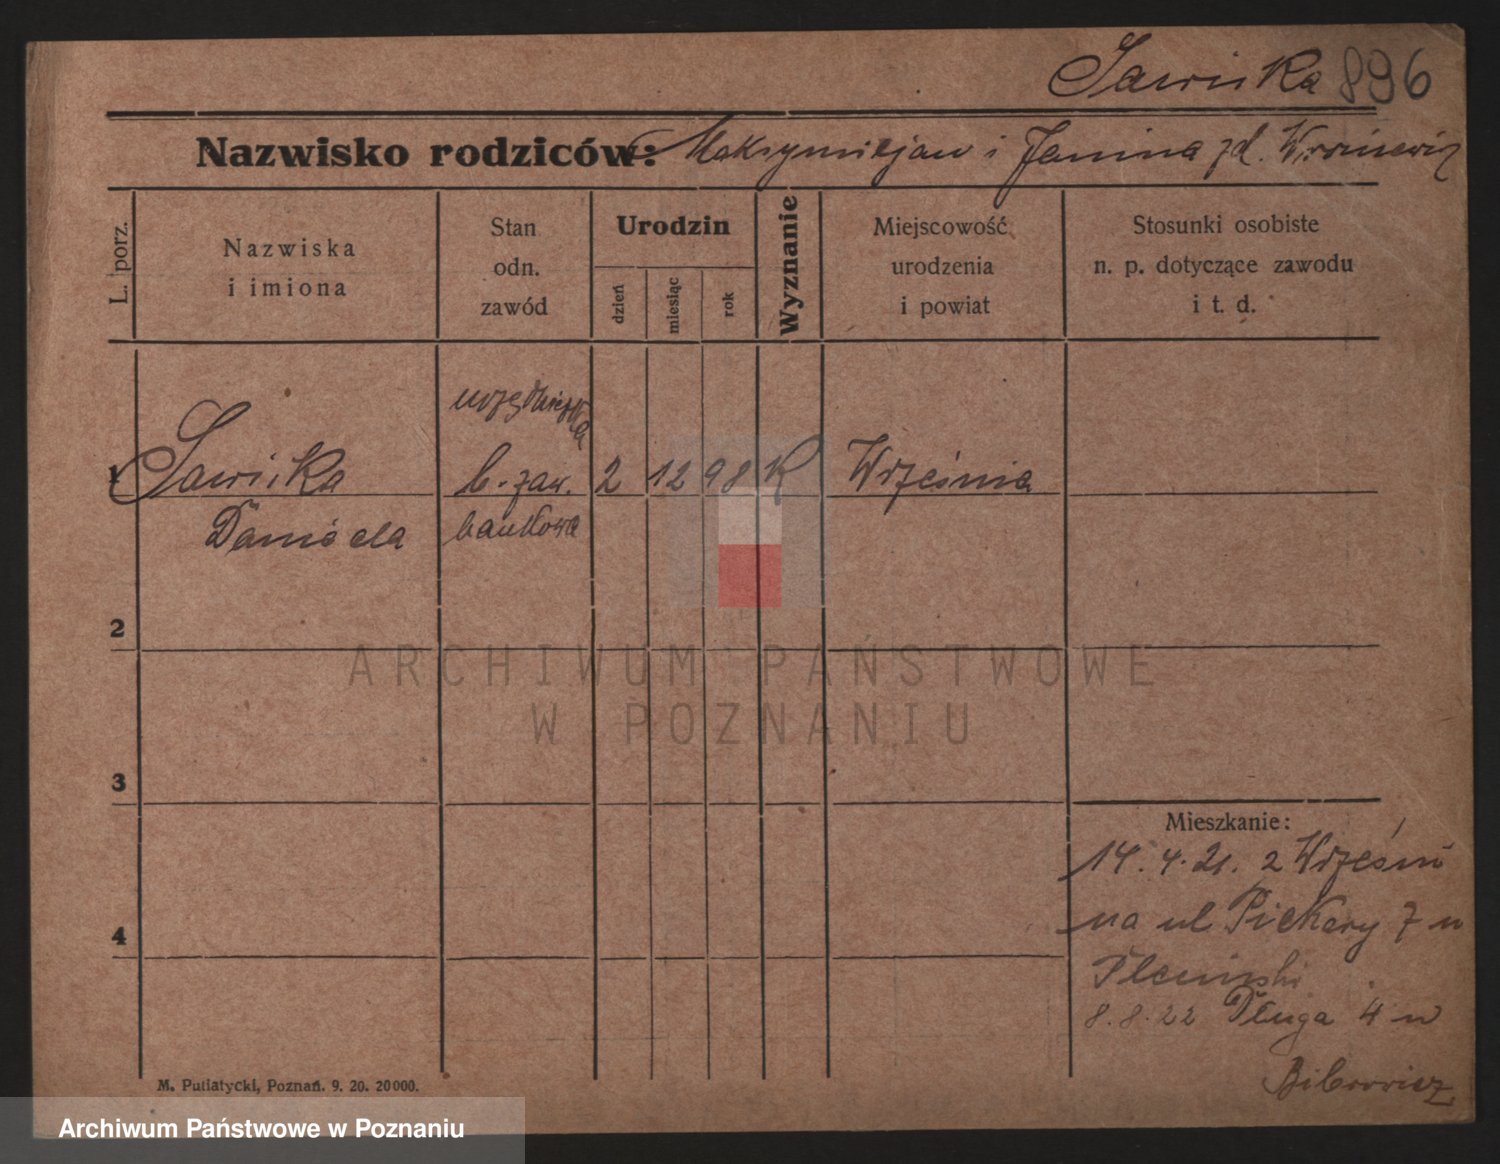 Sawicka 896
Nazwisko rodziców: Maksymiljan i Janina zd.
L. porz.
Nazwiska
i imiona
Stan
odn.
zawód
Urodzin
dzień
miesiąc
rok
Wyznanie
Miejscowość
urodzenia
i powiat
Stosunki osobiste
n. p. dotyczące zawodu
i t. d.
1
Sawicka
Daniela
urzędniczka
b. zaw.
bankowa
2
12
98
K
Września
2
3
4
Mieszkanie:
14. 4. 21. z Wrześni
na ul Piekary 7 u
8. 8. 22 Długa 4 u
M. Putiatycki, Poznań. 9. 20. 20000.
ARCHIWUM PAŃSTWOWE
W POZNANIU
Archiwum Państwowe w Poznaniu